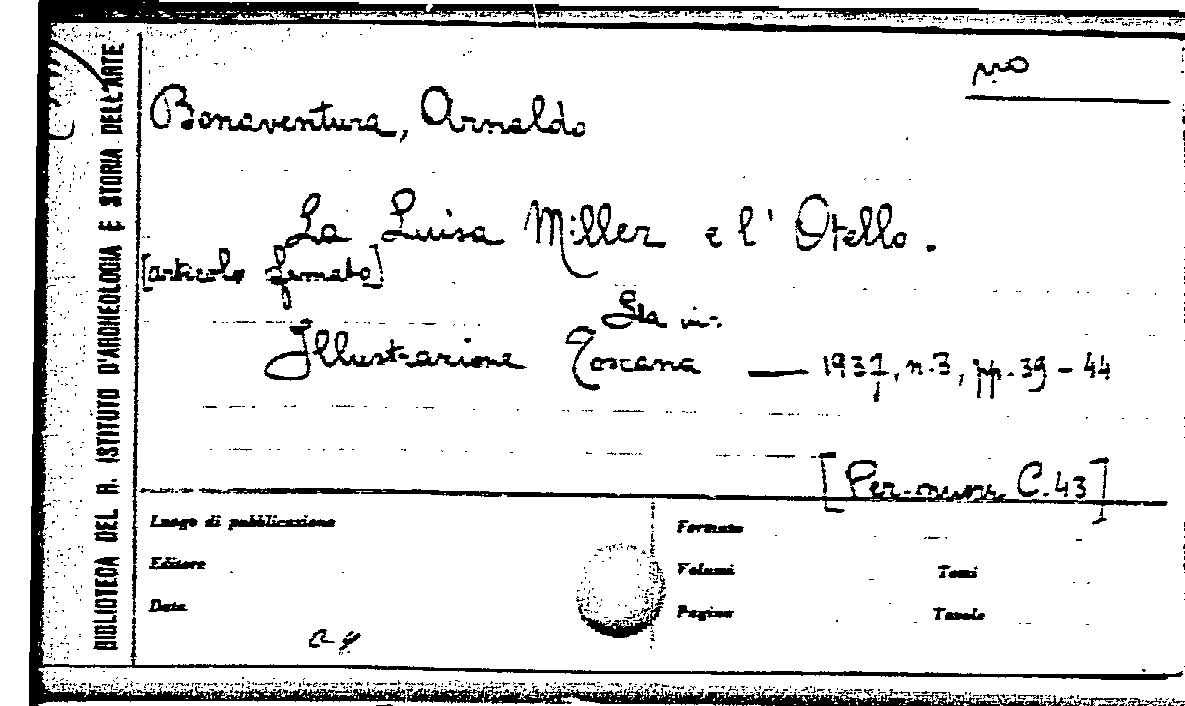 BIBLIOTECA DEL R. ISTITUTO D'ARCHEOLOGIA E STORIA DELL'ARTE
Bonaventura, Arnaldo
La Luisa Miller e l'Otello.
[articolo firmato]
Sta in:
Illustrazione Toscana — 1937, n.3, pp. 39-44
[Per. C.43]
Luogo di pubblicazione
Formato
Editore
Volumi
Tomi
Data
Pagine
Tavole